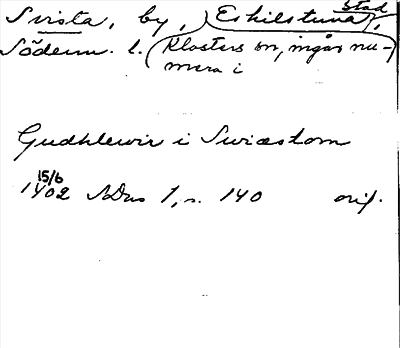 Svista, by, Eskilstuna stad,
Söderm. l. (Klosters sn, ingår nu-
mera i)
Gudhlewir i Swiastom
15/6
1402 SDns 1, s. 140 orig.